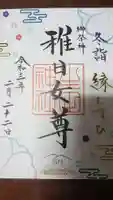 冬詣 縁むすび
御祭神
稚日女尊
令和三年
二月二十二日